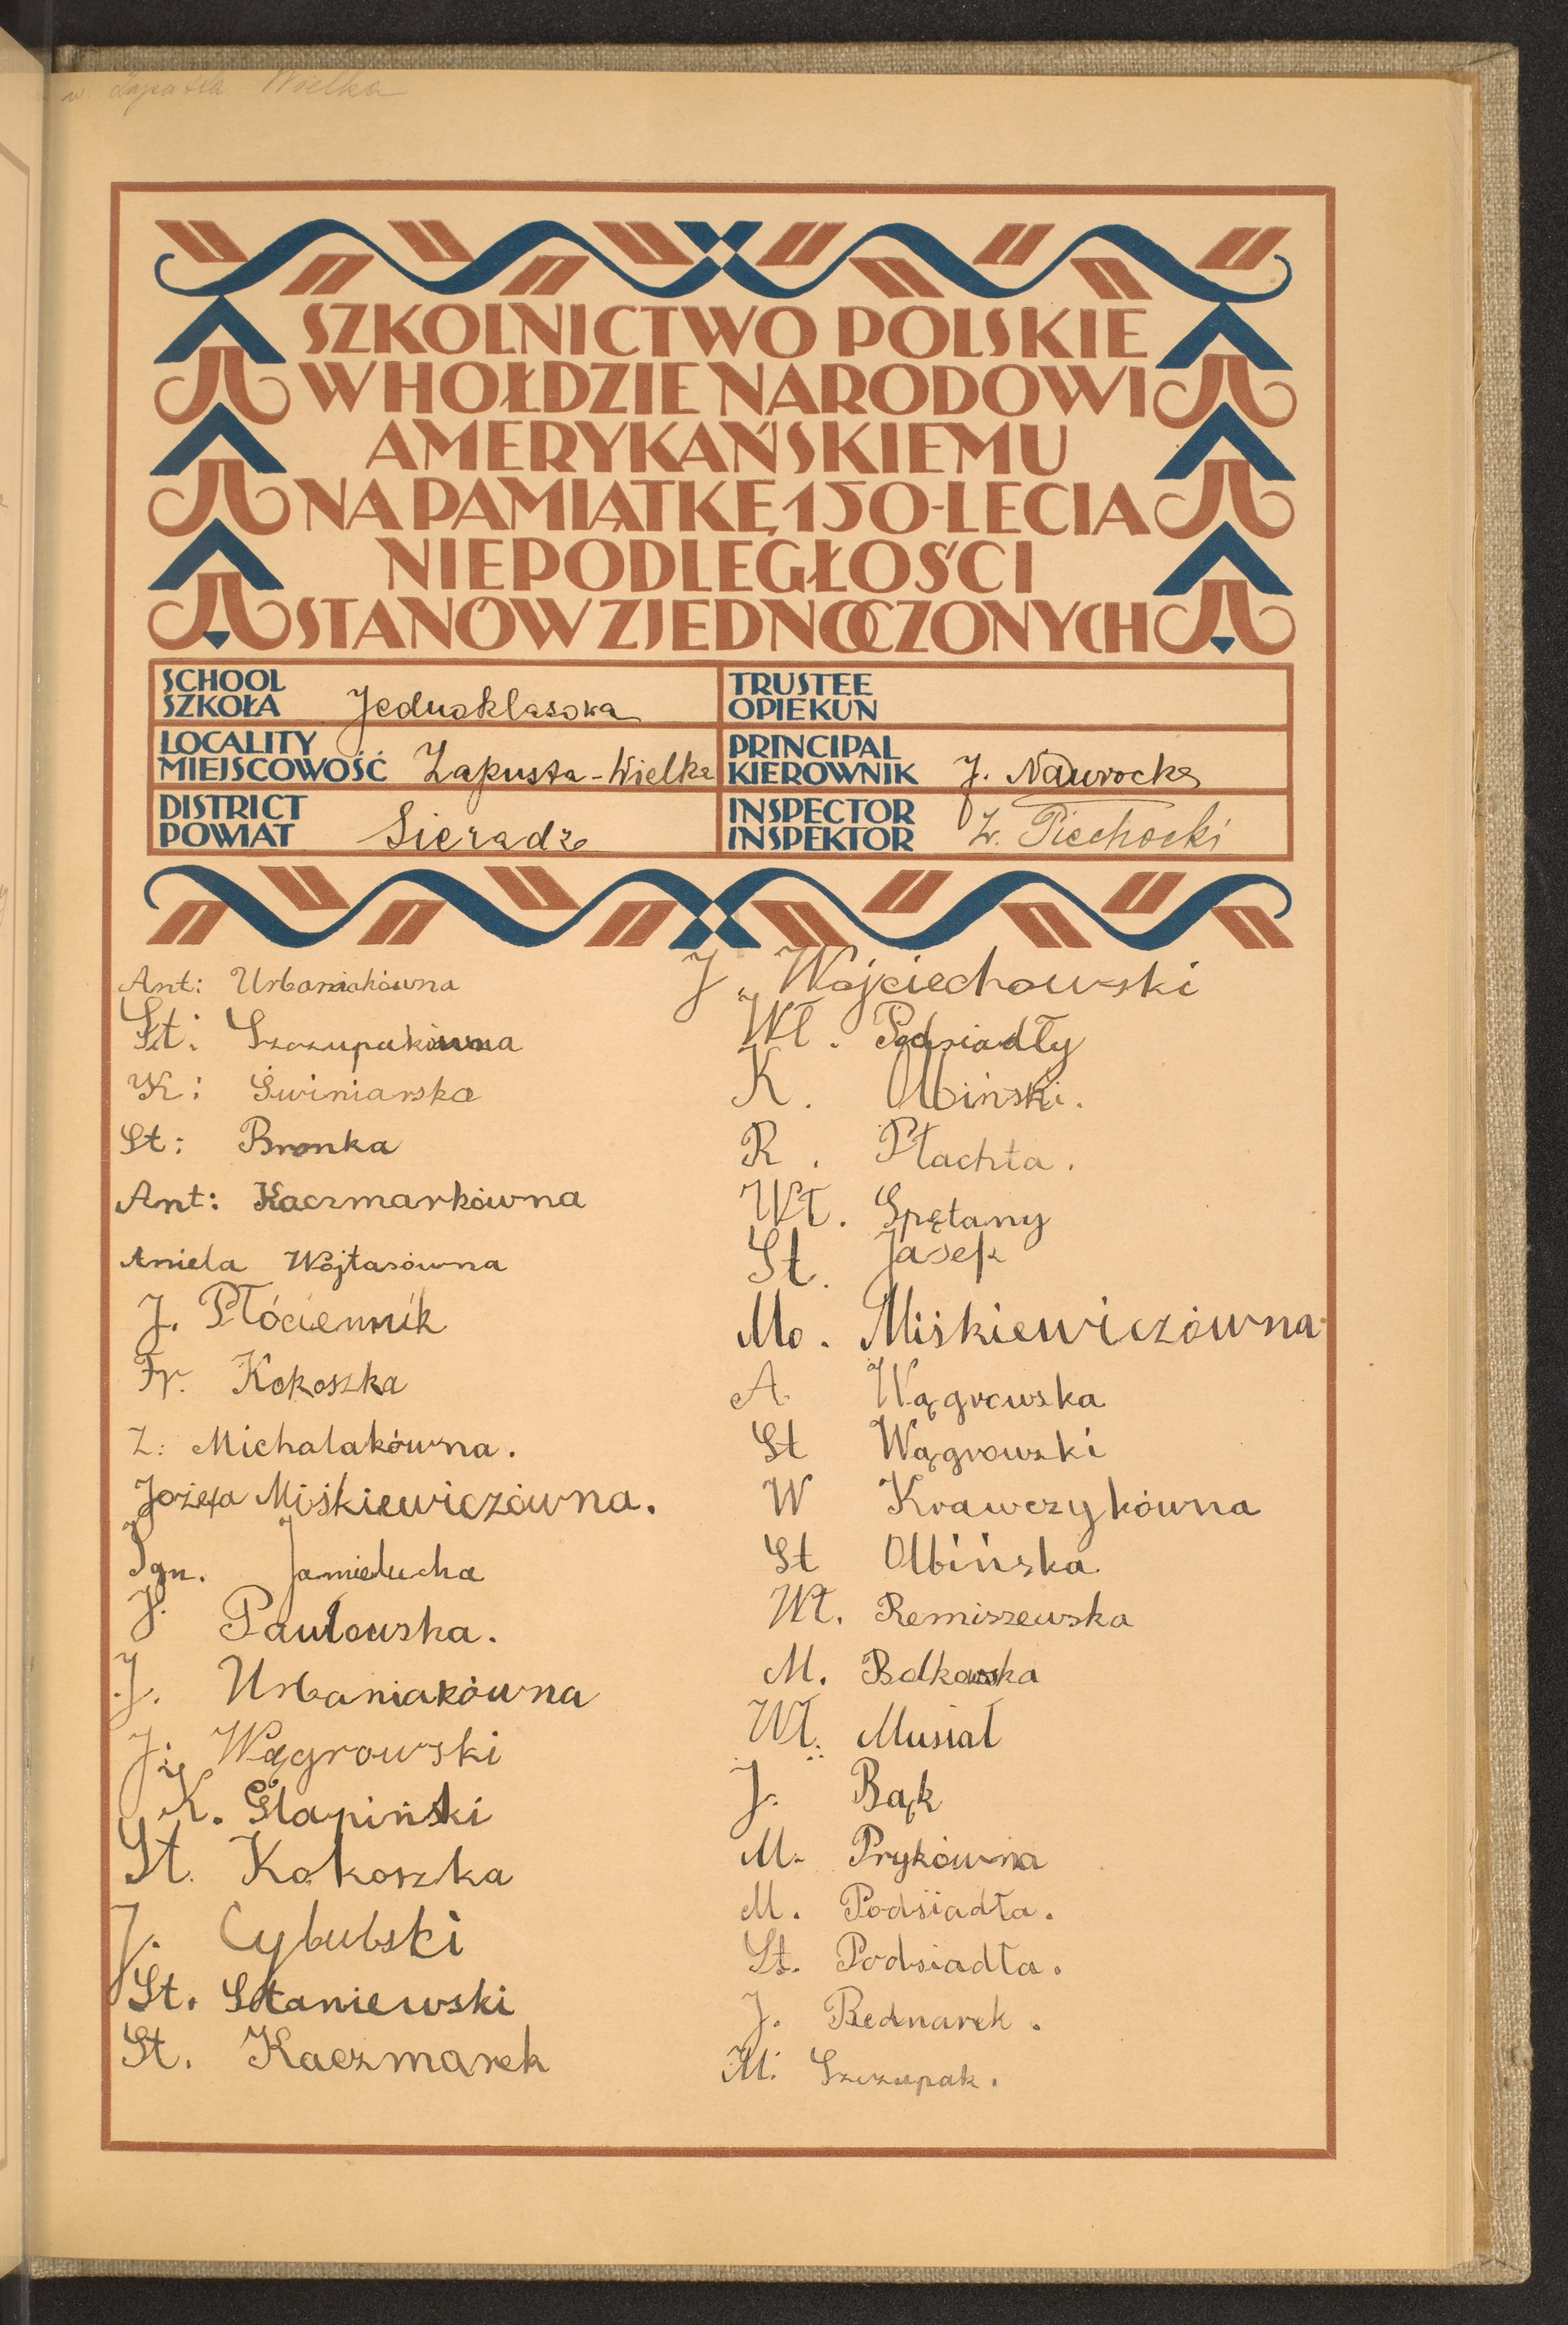 w. Zapusta Wielka
SZKOLNICTWO POLSKIE
W HOŁDZIE NARODOWI
AMERYKAŃSKIEMU
NA PAMIĄTKĘ 150-LECIA
NIEPODLEGŁOŚCI
STANÓW ZJEDNOCZONYCH
SCHOOL
SZKOŁA Jednoklasowa
TRUSTEE
OPIEKUN
LOCALITY
MIEJSCOWOŚĆ Zapusta-Wielka
PRINCIPAL
KIEROWNIK J. Nawrocka
DISTRICT
POWIAT Sieradz
INSPECTOR
INSPEKTOR Piechocki
Ant: Urbaniakówna
St: Szczupakówna
K: Świniarska
St: Bronka
Ant: Kaczmarkówna
Aniela Wojtasówna
J. Płóciennik
Fr. Kokoszka
Z: Michalakówna.
Jozefa Miśkiewiczówna.
Ign. Jamielucha
J. Pawłowska.
J. Urbaniakówna
J. Wągrowski
K. Ślapiński
St. Kokoszka
J. Cybubski
St. Staniewski
St. Kaczmarek
J. Wojciechowski
Wł. Podsiadły
K. Olbiński.
R. Płachta.
Wł. Spętany
St. Jasek
Ma. Miśkiewiczówna
A. Wągrowska
St Wągrowski
W Krawczykówna
St Olbińska
Wł. Remiszewska
M. Bolkowska
Wł. Musiał
J. Bąk
M. Prykówna
M. Podsiadła.
St. Podsiadła.
J. Bednarek.
M. Szczupak.